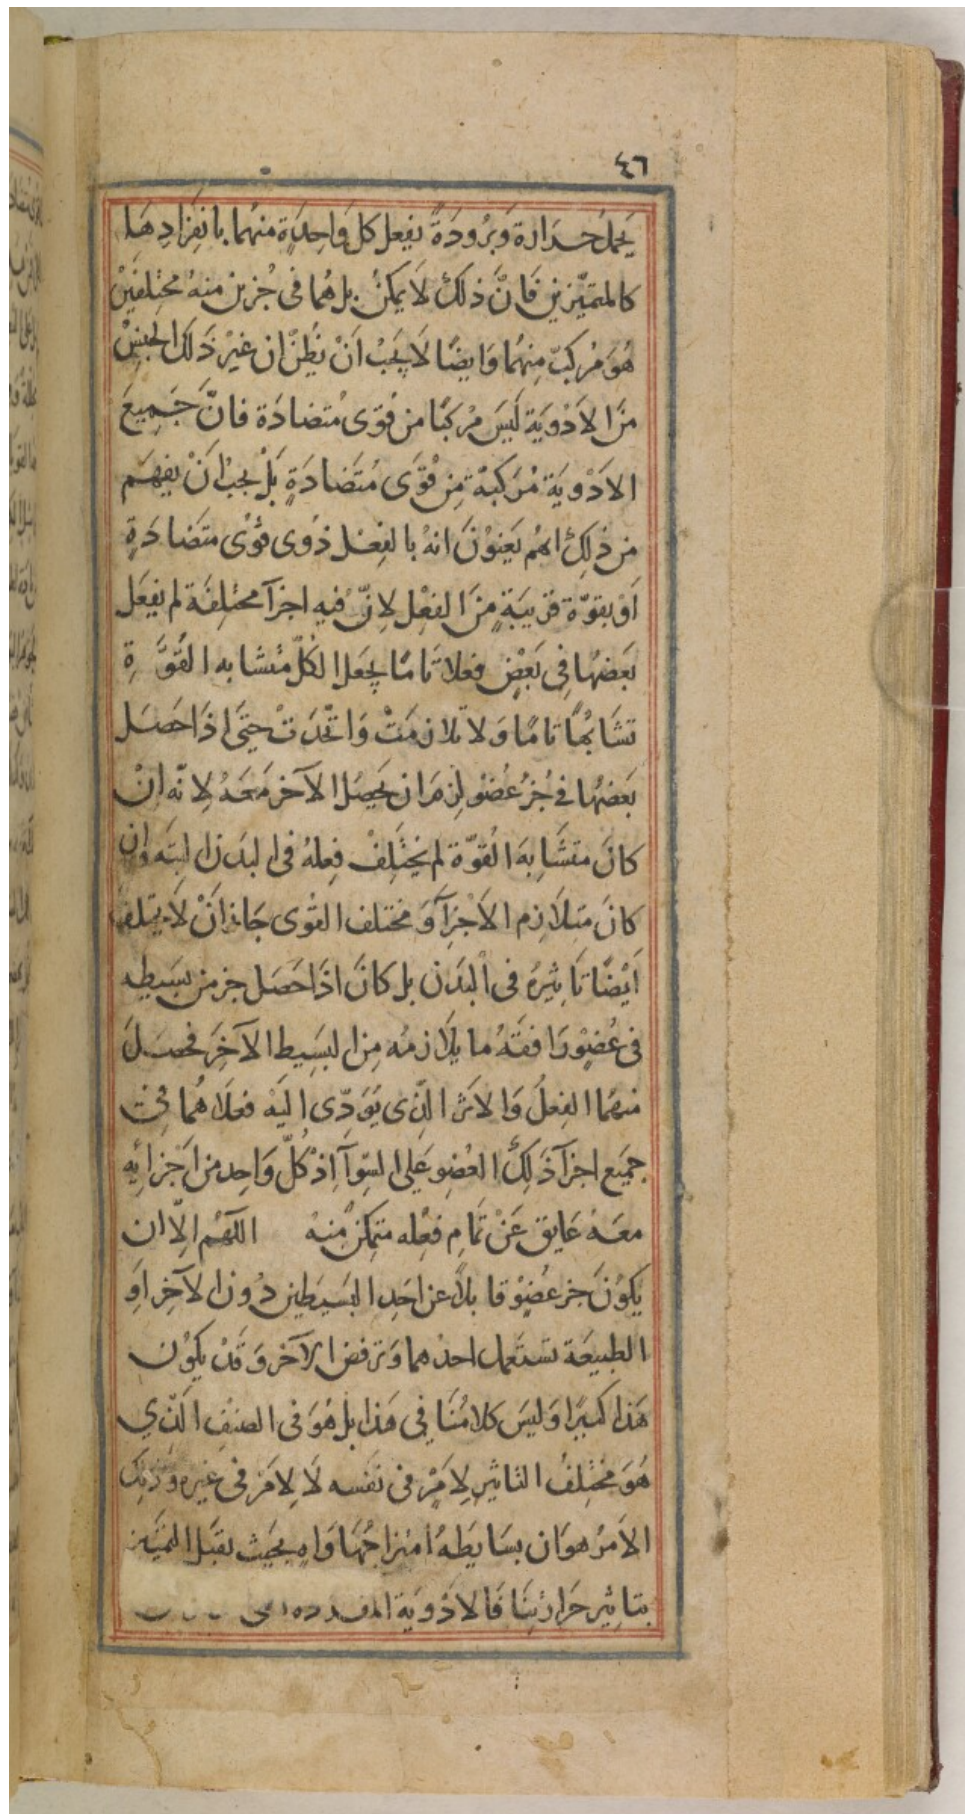 ٤٦
يحمل حرارة وبرودة يفعل كل واحدة منهما بانفرادها
كالمتميزين فان ذلك لا يمكن بل هما فى جزين منه مختلفين
هو مركب منهما وايضا لا يجب ان يظن ان غير ذلك الجنس
من الادوية ليس مركبا من قوى متضادة فان جميع
الادوية مركبة من قوى متضادة بل يجب ان يفهم
من ذلك انهم يعنون انه بالفعل ذوى قوى متضادة
او بقوة قريبة من الفعل لان فيه اجزآ مختلفة لم يفعل
بعضها فى بعض فعلا تاما يجعل الكل متشابه القوة
تشابها تاما ولا تلازمت واتحدت حتى اذا حصل
بعضها فى جزء عضو لزم ان يحصل الآخر معه لانه ان
كان متشابه القوة لم يختلف فعله فى البدن البته وان
كان متلازم الاجزآ ومختلف القوى جاز ان لا يختلف
ايضا تاثيره فى البدن بل كان اذا حصل جز من بسيطه
فى عضو وافقه ما يلازمه من البسيط الآخر فحصل
منهما الفعل والاثر الذى يودى اليه فعلاهما فى
جميع اجزآ ذلك العضو على السوآ اذ كل واحد من اجزائه
معه عايق عن تمام فعله متمكن منه اللهم الا ان
يكون جز عضو قابلا عن احد البسيطين دون الآخر او
الطبيعة تستعمل احدهما وترفض الآخر وقد يكون
هذا كثيرا وليس كلامنا فى هذا بل هو فى الصنف الذي
هو مختلف التاثير لامر فى نفسه لا لامر فى غيره وذلك
الامر هو ان بسايطه امتزاجها واه بحيث يقبل التميز
بتاثير حرارتنا فالادوية المفرده